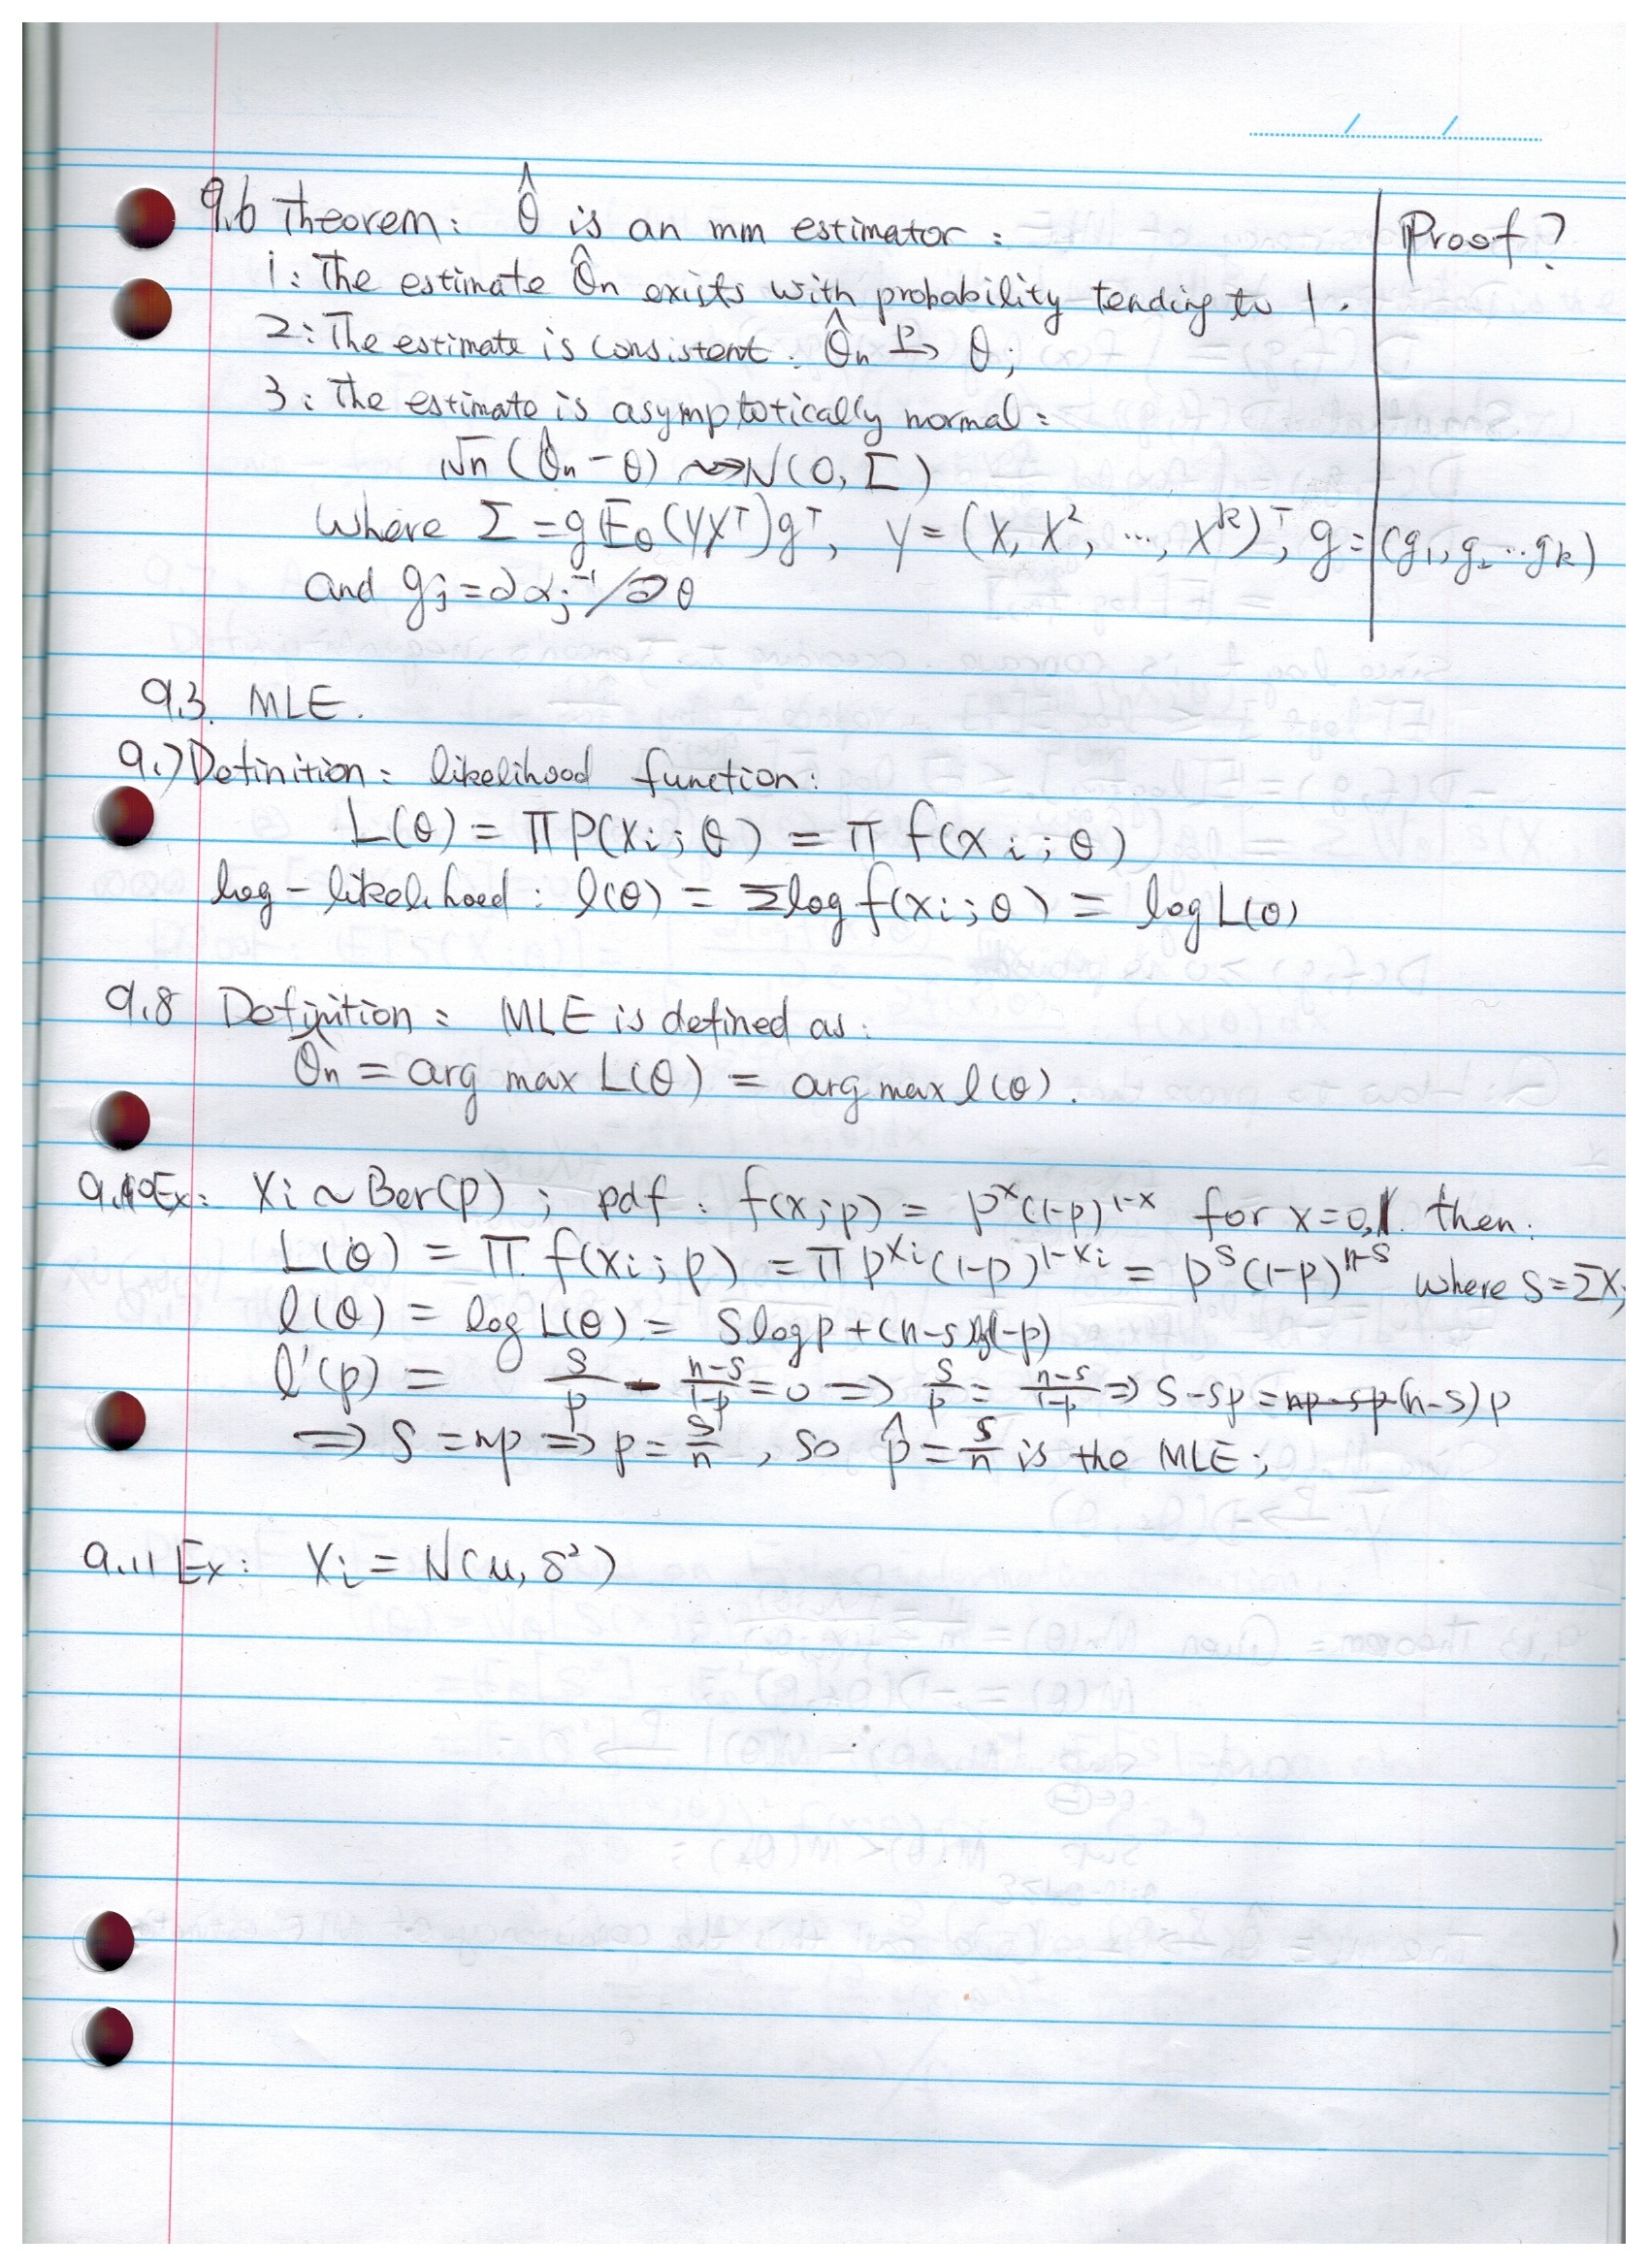 9.6 Theorem: θ̂ is an mm estimator:
Proof?
1: The estimate θ̂n exists with probability tending to 1.
2: The estimate is consistent. θ̂n →ᵖ θ;
3: The estimate is asymptotically normal:
√n (θ̂n − θ) ⇝ N(0, Σ)
Where Σ = g 𝔼θ(YYᵀ)gᵀ, Y = (X, X², ..., Xᵏ)ᵀ, g = (g₁, g₂ ... gk)
and gj = ∂αj⁻¹/∂θ
9.3. MLE.
9.7 Definition: likelihood function:
L(θ) = π P(Xi; θ) = π f(xi; θ)
log-likelihood: l(θ) = Σ log f(xi; θ) = log L(θ)
9.8 Definition: MLE is defined as:
θ̂n = arg max L(θ) = arg max l(θ).
9.10 Ex: Xi ~ Ber(p); pdf: f(x; p) = pˣ(1-p)¹⁻ˣ for x=0,1. then:
L(θ) = π f(xi; p) = π p^Xi (1-p)^1-Xi = p^S (1-p)^n-S where S = ΣXi
l(θ) = log L(θ) = S log p + (n-s) log(1-p)
l'(p) = S/p - n-s/1-p = 0 ⇒ S/p = n-s/1-p ⇒ S - sp = np-sp (n-s) p
⇒ S = np ⇒ p = S/n, so p̂ = S/n is the MLE;
9.11 Ex: Xi = N(u, δ²)